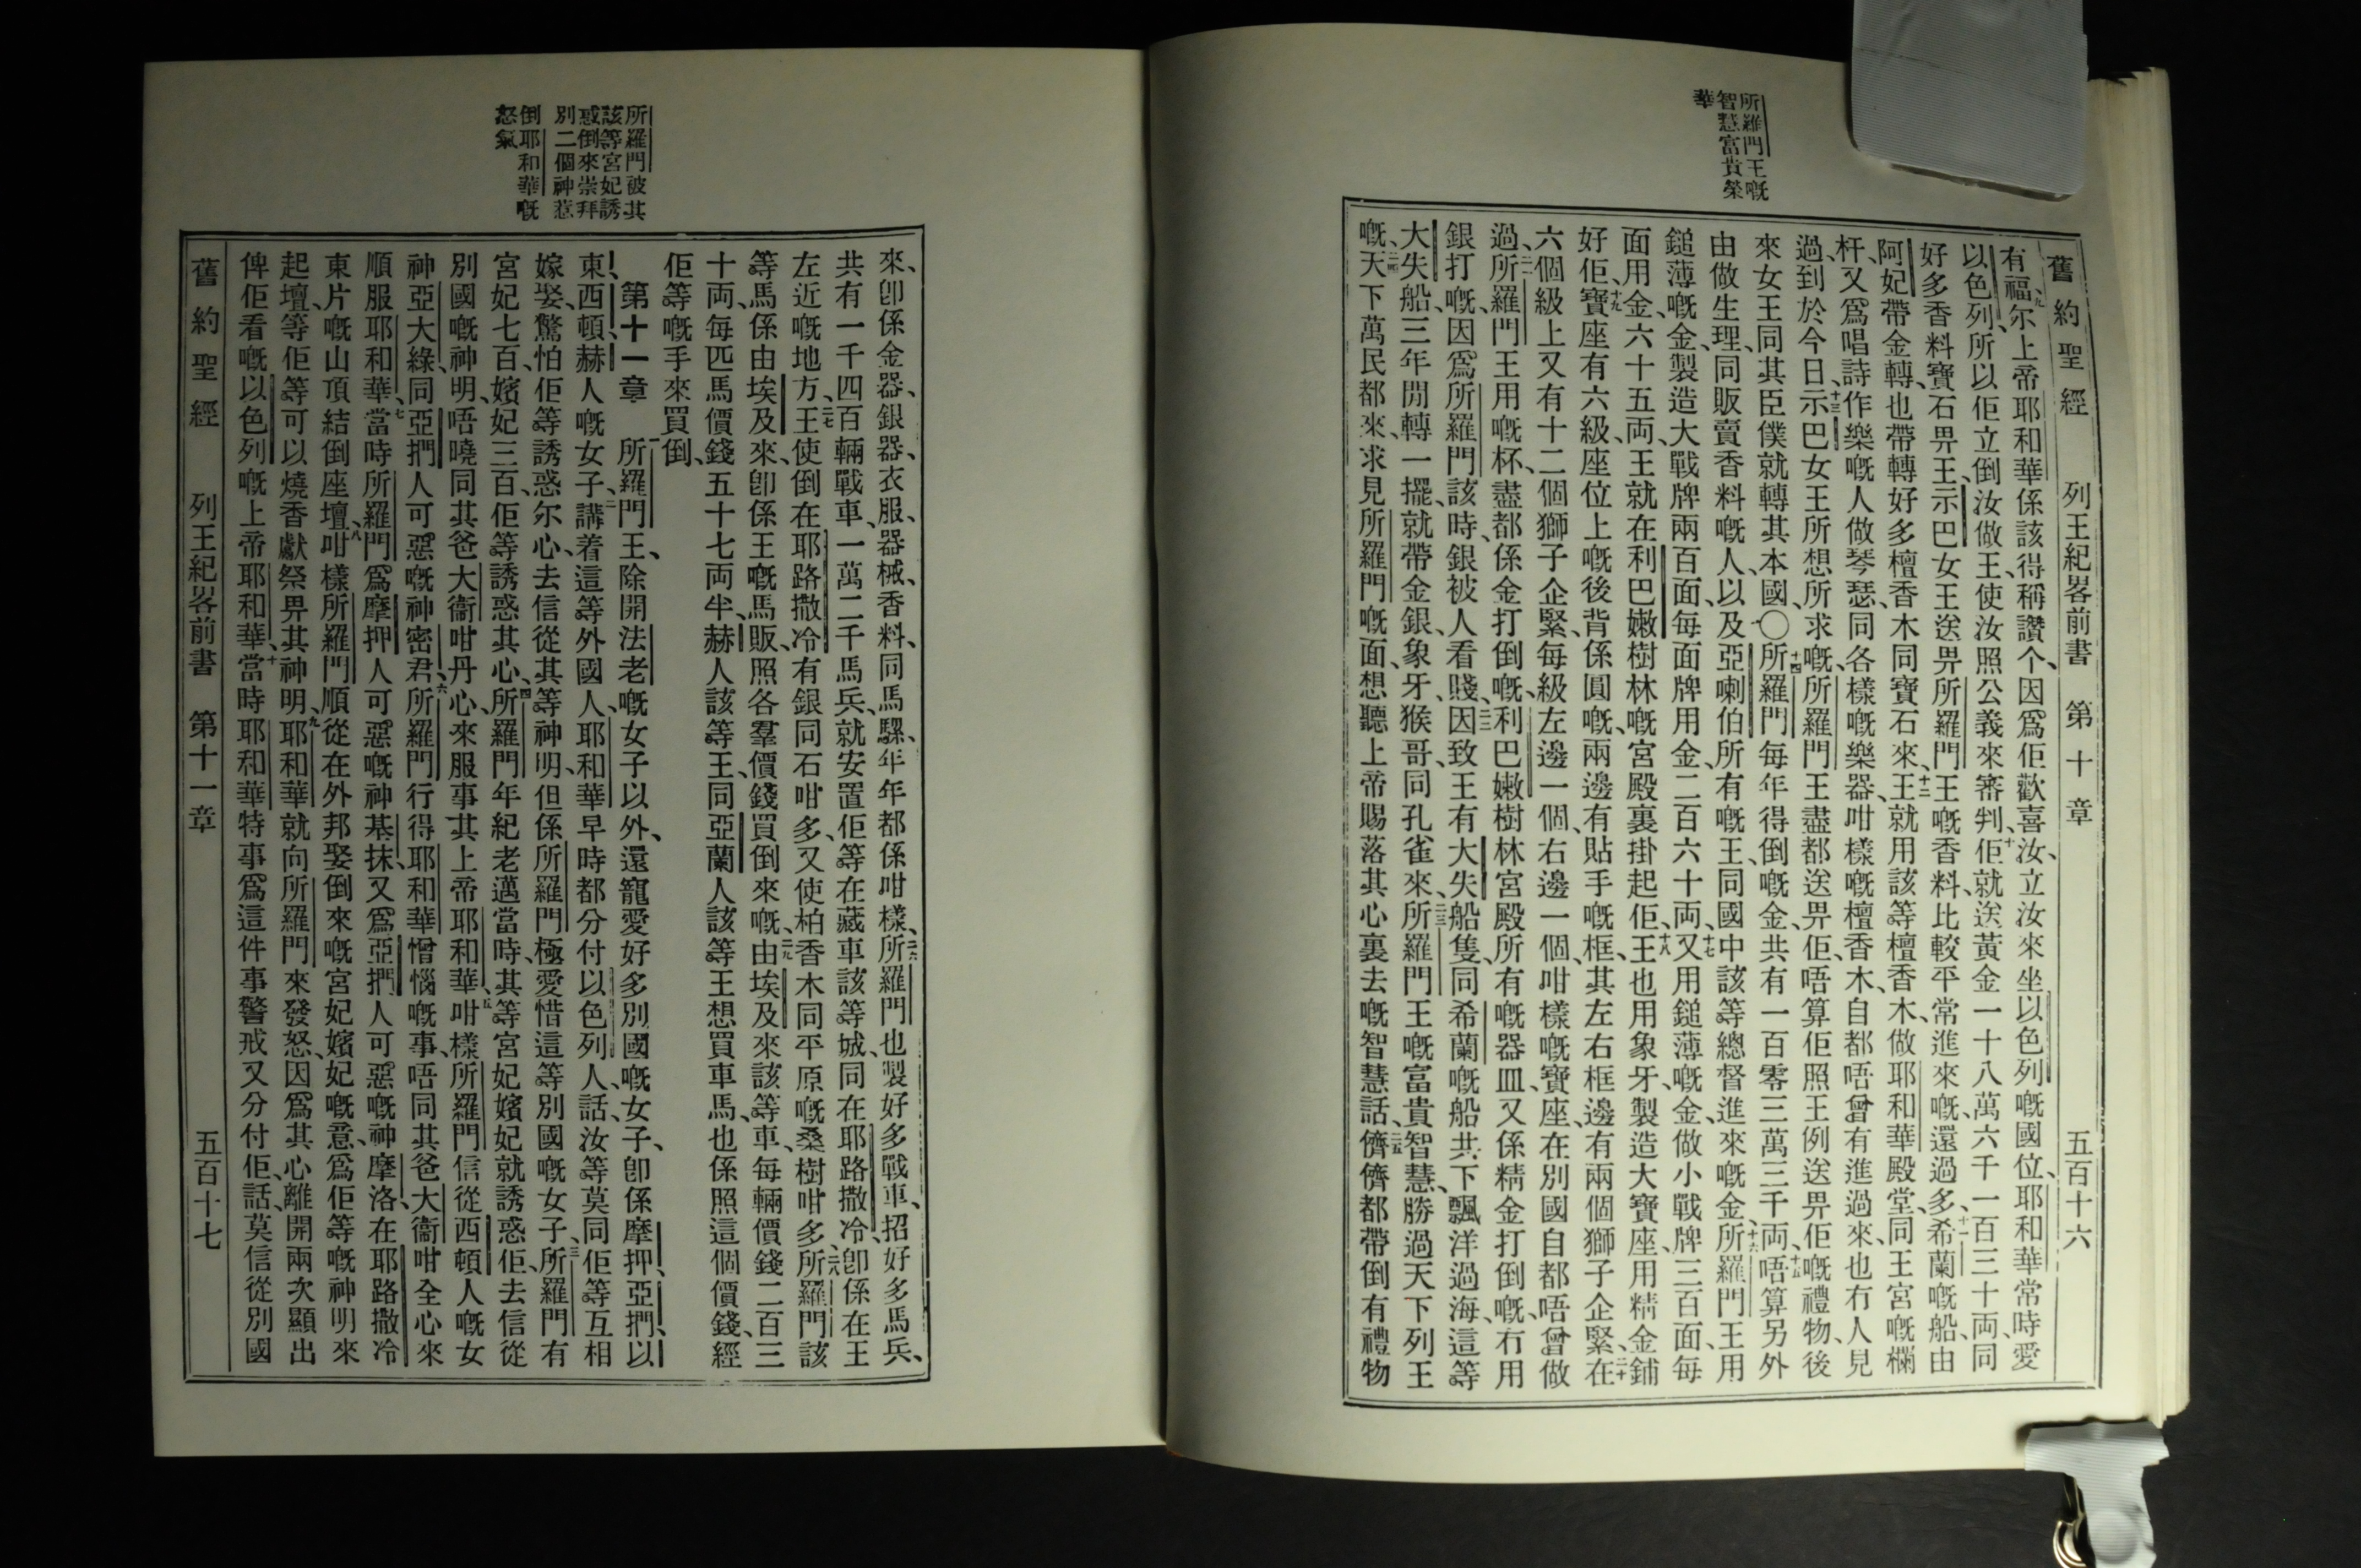 舊約聖經　列王紀畧前書　第十章　五百十六
所羅門王嘅
智慧富貴榮
華
有福、九尔上帝耶和華係該得稱讚个、因爲佢歡喜汝、立汝來坐以色列嘅國位、耶和華常時愛
以色列、所以佢立倒汝做王、使汝照公義來審判、十佢就送黃金一十八萬六千一百三十両、同
好多香料寶石畀王、示巴女王送畀所羅門王嘅香料、比較平常進來嘅、還過多、十一希蘭嘅船、由
阿妃帶金轉、也帶轉好多檀香木同寶石來、十二王就用該等檀香木、做耶和華殿堂、同王宮嘅欄
杆、又爲唱詩作樂嘅人做琴瑟、同各樣嘅樂器、咁樣嘅檀香木、自都唔曾有進過來、也冇人見
過、到於今日、十三示巴女王所想所求嘅、所羅門王盡都送畀佢、唔算佢照王例送畀佢嘅禮物、後
來女王同其臣僕就轉其本國、〇十四所羅門每年得倒嘅金、共有一百零三萬三千両、十五唔算另外
由做生理、同販賣香料嘅人、以及亞喇伯所有嘅王、同國中該等總督進來嘅金、十六所羅門王用
鎚薄嘅金、製造大戰牌兩百面、每面牌用金二百六十両、十七又用鎚薄嘅金、做小戰牌三百面、每
面用金六十五両、王就在利巴嫩樹林嘅宮殿裏掛起佢、十八王也用象牙、製造大寶座、用精金鋪
好佢、十九寶座有六級、座位上嘅後背係圓嘅、兩邊有貼手嘅框、其左右框邊有兩個獅子企緊、二十在
六個級上又有十二個獅子企緊、每級左邊一個、右邊一個、咁樣嘅寶座、在別國自都唔曾做
過、二一所羅門王用嘅杯、盡都係金打倒嘅、利巴嫩樹林宮殿所有嘅器皿、又係精金打倒嘅、冇用
銀打嘅、因爲所羅門該時、銀被人看賤、二二因致王有大失船隻、同希蘭嘅船共下飄洋過海、這等
大失船、三年開轉一擺、就帶金銀、象牙、猴哥、同孔雀來、二三所羅門王嘅富貴智慧、勝過天下列王
嘅、二四天下萬民都來、求見所羅門嘅面、想聽上帝賜落其心裏去嘅智慧話、二五儕儕都帶倒有禮物
來、卽係金器、銀器、衣服、器械、香料、同馬騾、年年都係咁樣、二六所羅門也製好多戰車、招好多馬兵、
共有一千四百輛戰車、一萬二千馬兵、就安置佢等在藏車該等城、同在耶路撒冷、卽係在王
左近嘅地方、二七王使倒在耶路撒冷有銀同石咁多、又使柏香木同平原嘅桑樹咁多、二八所羅門該
等馬係由埃及來、卽係王嘅馬販、照各羣價錢買倒來嘅、二九由埃及來該等車、每輛價錢二百三
十両、每匹馬價錢五十七両半、赫人該等王、同亞蘭人該等王想買車馬、也係照這個價錢、經
佢等嘅手來買倒、
第十一章　一所羅門王、除開法老嘅女子以外、還寵愛好多別國嘅女子、卽係摩押、亞捫、以
東、西頓、赫人嘅女子、二講着這等外國人、耶和華早時都分付以色列人、話、汝等莫同佢等互相
嫁娶、驚怕佢等誘惑尔心、去信從其等神明、但係所羅門極愛惜這等別國嘅女子、三所羅門有
宮妃七百、嬪妃三百、佢等誘惑其心、四所羅門年紀老邁當時、其等宮妃嬪妃就誘惑佢、去信從
別國嘅神明、唔曉同其爸大衞咁丹心、來服事其上帝耶和華、五咁樣所羅門信從西頓人嘅女
神亞大綠、同亞捫人可惡嘅神密君、六所羅門行得耶和華憎惱嘅事、唔同其爸大衞咁全心來
順服耶和華、七當時所羅門爲摩押人可惡嘅神基抹、又爲亞捫人可惡嘅神摩洛、在耶路撒冷
東片嘅山頂結倒座壇、八咁樣所羅門順從在外邦娶倒來嘅宮妃嬪妃嘅意、爲佢等嘅神明來
起壇、等佢等可以燒香獻祭畀其神明、九耶和華就向所羅門來發怒、因爲其心離開兩次顯出
俾佢看嘅以色列嘅上帝耶和華、十當時耶和華特事爲這件事警戒、又分付佢、話、莫信從別國
所羅門被其
該等宮妃誘
惑倒來崇拜
別二個神惹
倒耶和華嘅
怒氣
舊約聖經　列王紀畧前書　第十一章　五百十七